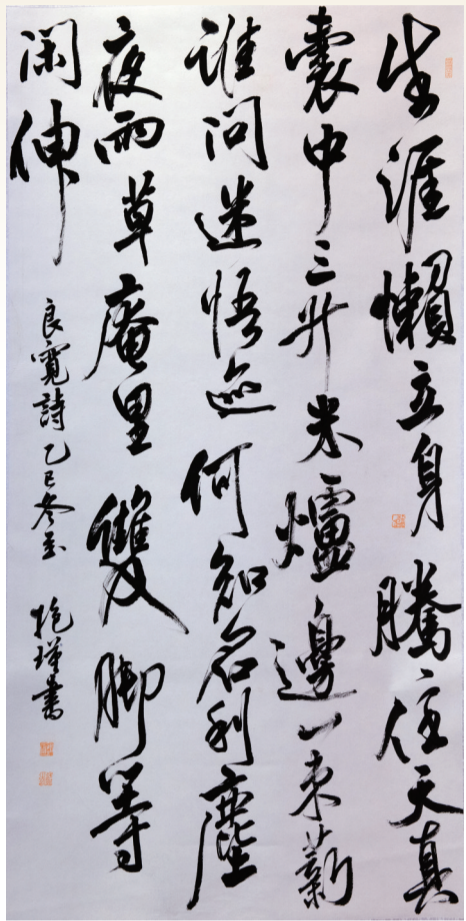 生涯懶立身騰〻任天真
囊中三升米爐邊一束薪
誰問迷悟迹何知名利塵
夜雨草庵里雙脚等
閑伸
良寬詩 乙巳冬至 書